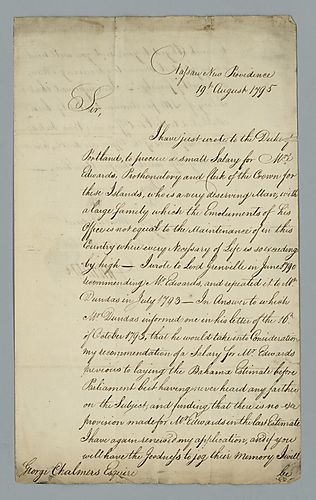 Nassau New Providence
19th August 1795
Sir,
I have just wrote to the Duke of
Portland, to procure a small Salary for Mr
Edwards, Prothonotary and Clerk of the Crown for
these Islands, who is a very deserving Man, with
a large family which the Emoluments of his
Office is not equal to the Maintenance of in this
Country where every Necessary of Life is so exceeding
ly high — I wrote to Lord Grenville in June 1790
recommending Mr Edwards, and repeated it to Mr
Dundas in July 1793 — In Answer to which
Mr Dundas informed me in his letter of the 16th
of October 1793, that he would take into Consideration
my recommendation of a Salary for Mr Edwards
previous to laying the Bahama Estimate before
Parliament but having never heard any farther
on the Subject, and finding that there is no
provision made for Mr Edwards in the last Estimate
I have again renewed my application, and if you
will have the Goodness to jog their Memory I will
be
George Chalmers Esquire